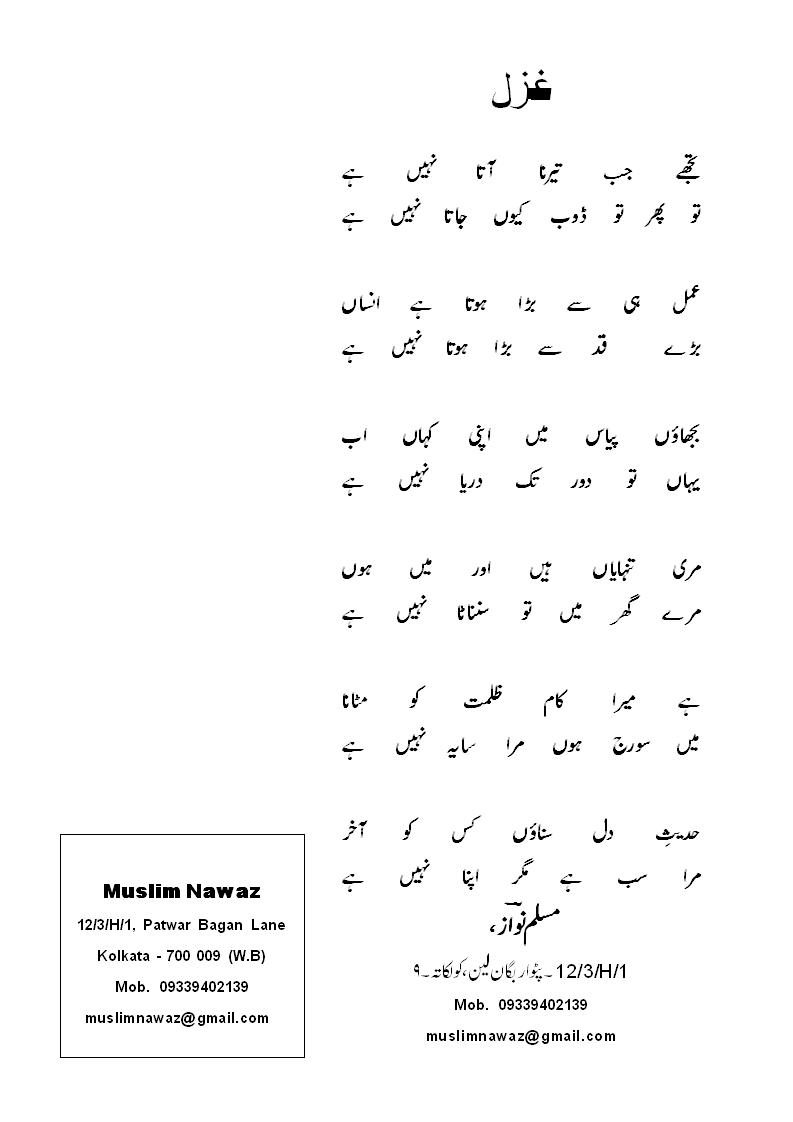 غزل
تجھے جب تیرنا آتا نہیں ہے
تو پھر تو ڈوب کیوں جاتا نہیں ہے
عمل ہی سے بڑا ہوتا ہے انساں
بڑے قد سے بڑا ہوتا نہیں ہے
بجھاؤں پیاس میں اپنی کہاں اب
یہاں تو دور تک دریا نہیں ہے
مری تنہایاں ہیں اور میں ہوں
مرے گھر میں تو سنناٹا نہیں ہے
ہے میرا کام ظلمت کو مٹانا
میں سورج ہوں مرا سایہ نہیں ہے
حدیثِ دل سناؤں کس کو آخر
مرا سب ہے مگر اپنا نہیں ہے
مسلم نواز،
12/3/H/1۔پٹوار بگان لین،کولکاتہ۔۹
Mob. 09339402139
muslimnawaz@gmail.com
Muslim Nawaz
12/3/H/1, Patwar Bagan Lane
Kolkata - 700 009 (W.B)
Mob. 09339402139
muslimnawaz@gmail.com